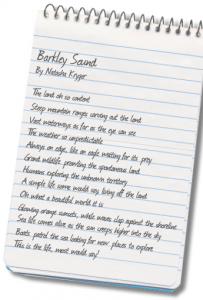 Barkley Sound
By Natasha Kryger
The land oh so content
Steep mountain ranges carving out the land
Vast waterways as far as the eye can see
The weather so unpredictable
Always on edge, like an eagle waiting for its prey
Grand wildlife prowling the spontaneous land
Humans exploring the unknown territory
A simple life some would say, living off the land
Oh what a beautiful world it is
Glowing orange sunsets, while waves clap against the shoreline
Sea life comes alive as the sun creeps higher into the sky
Boats patrol the sea looking for new places to explore
This is the life, most would say!